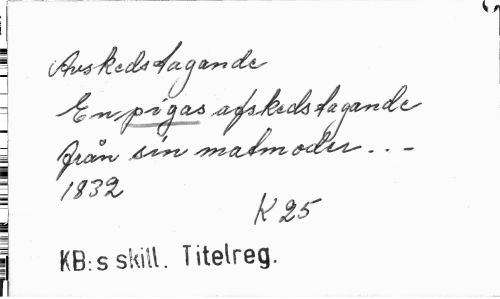 Avskedstagande
En pigas afskedstagande
från sin matmoder...-
1832
K 25
KB:s skill. Titelreg.